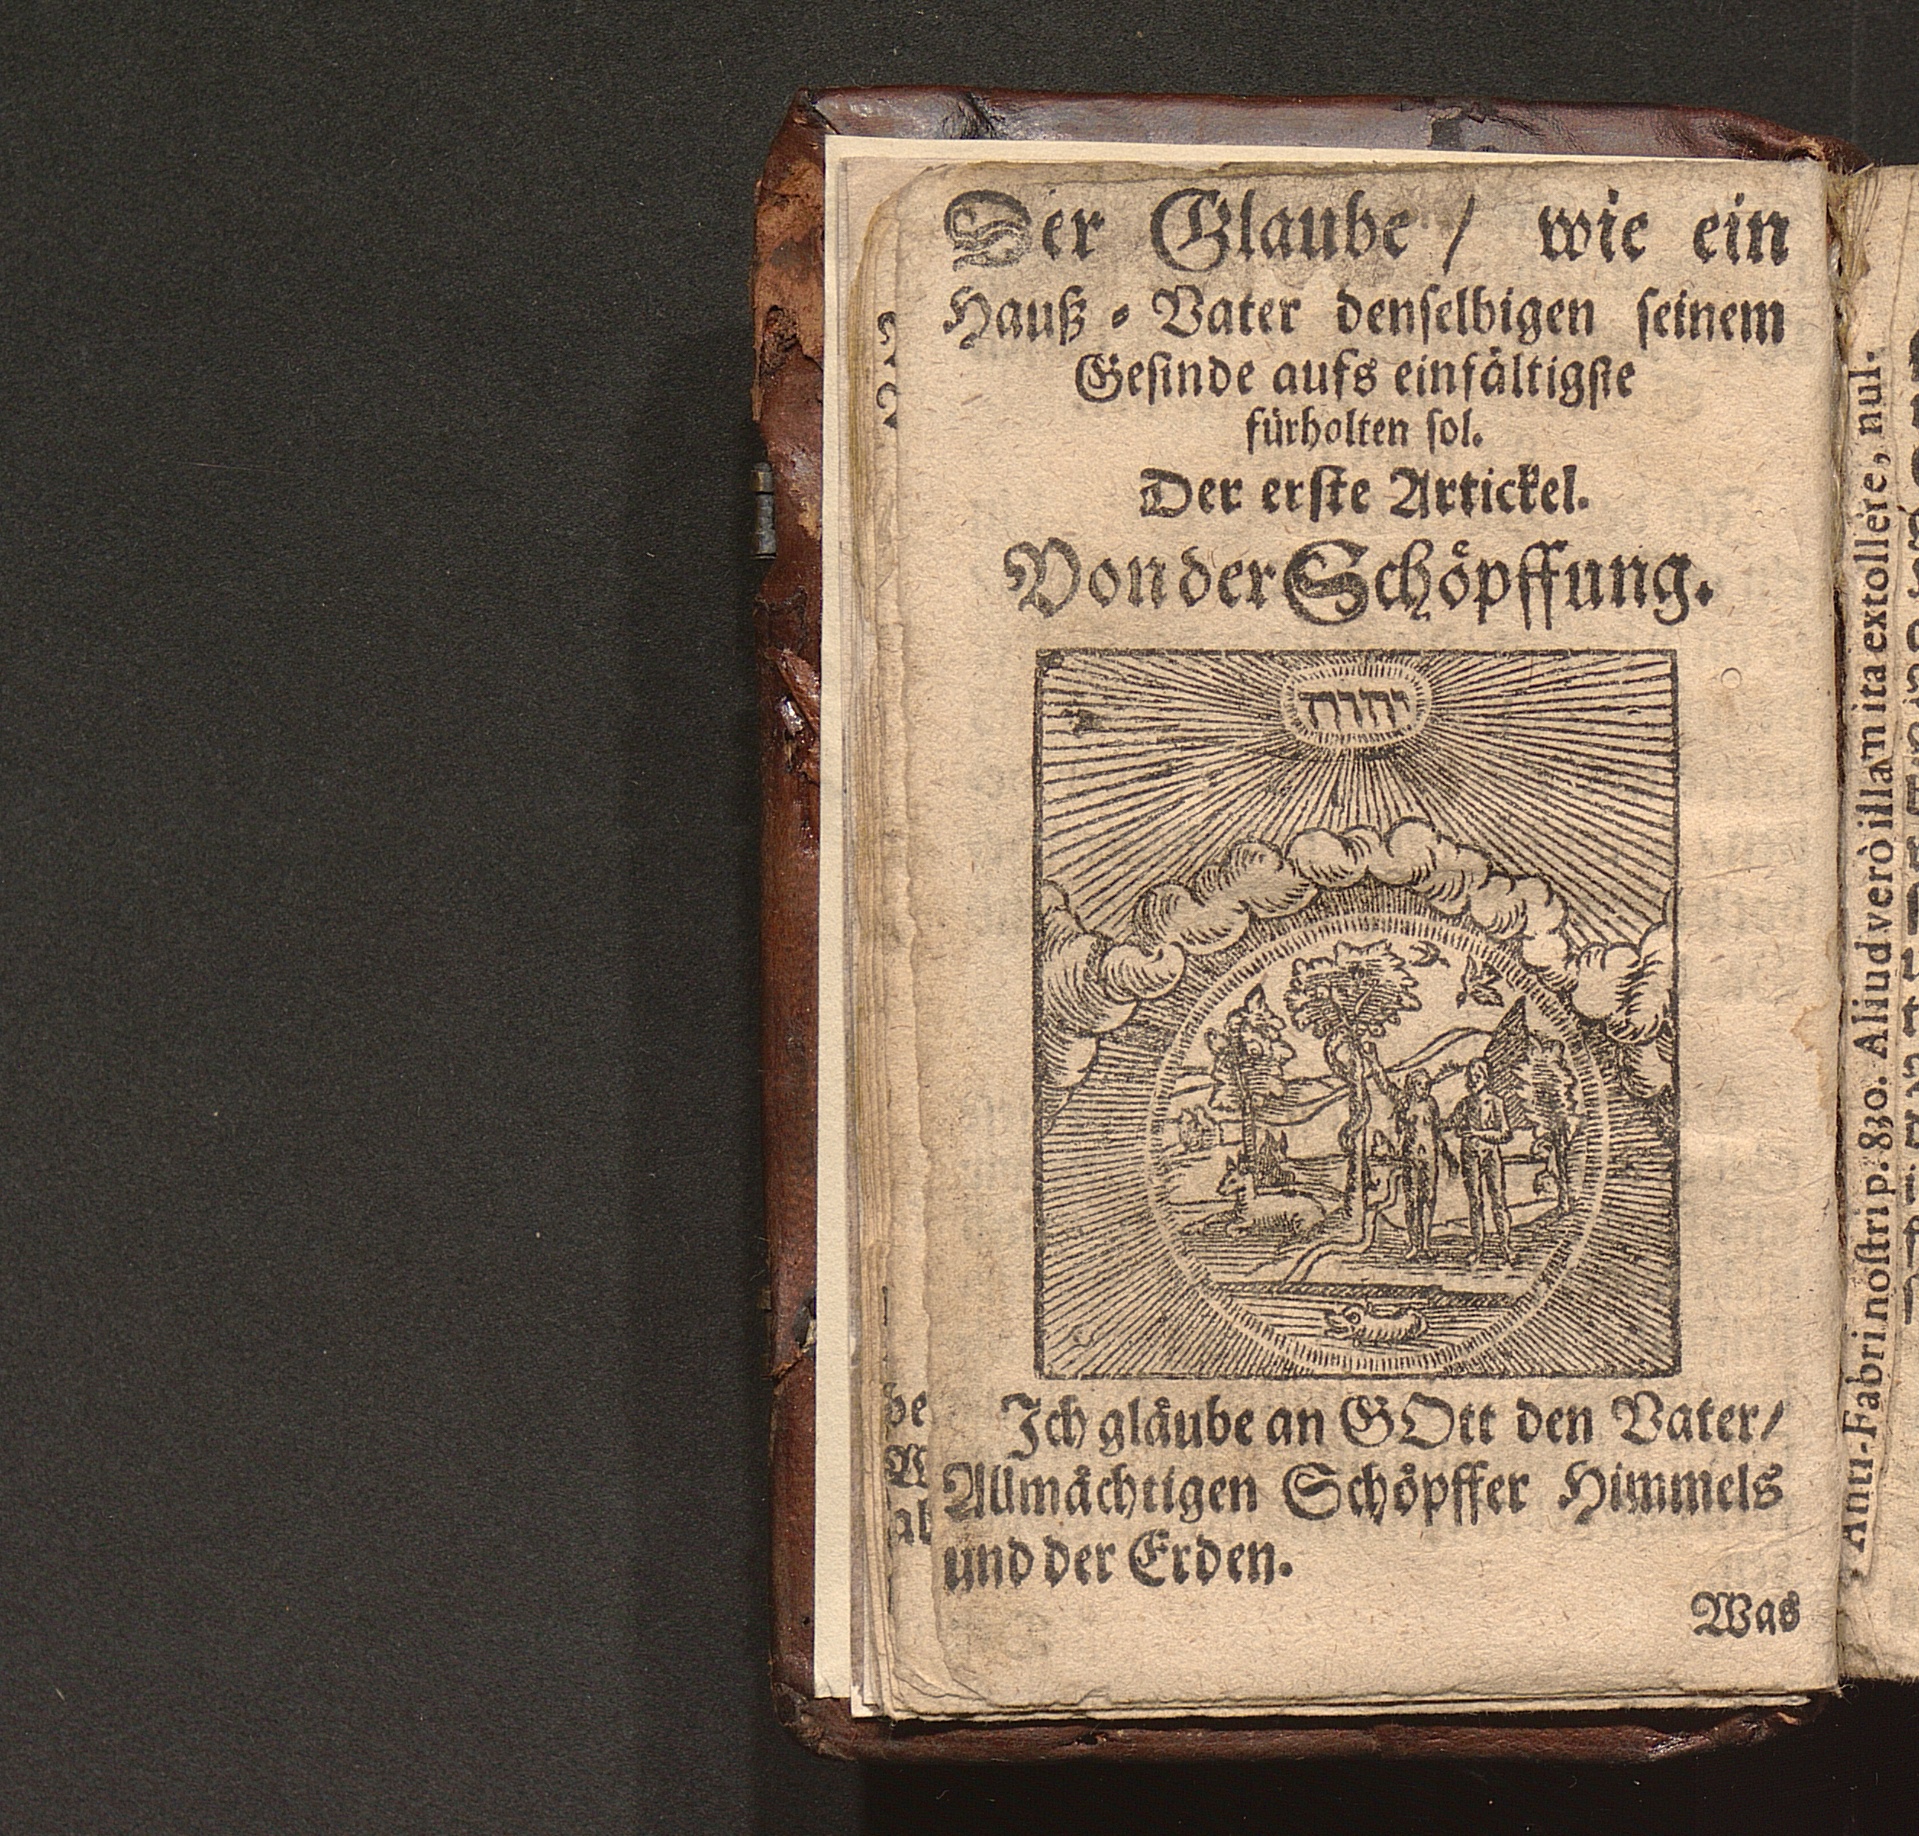 Der Glaube / wie ein
Hauß-Vater denselbigen seinem
Gesinde aufs einfältigste
fürholten sol.
Der erste Artickel.
Von der Schöpffung.
יהוה
Ich gläube an GOtt den Vater/
Allmächtigen Schöpffer Himmels
und der Erden.
Was
Anti-Fabri nostri p. 830. Aliud verò illam ita extollere, nul-